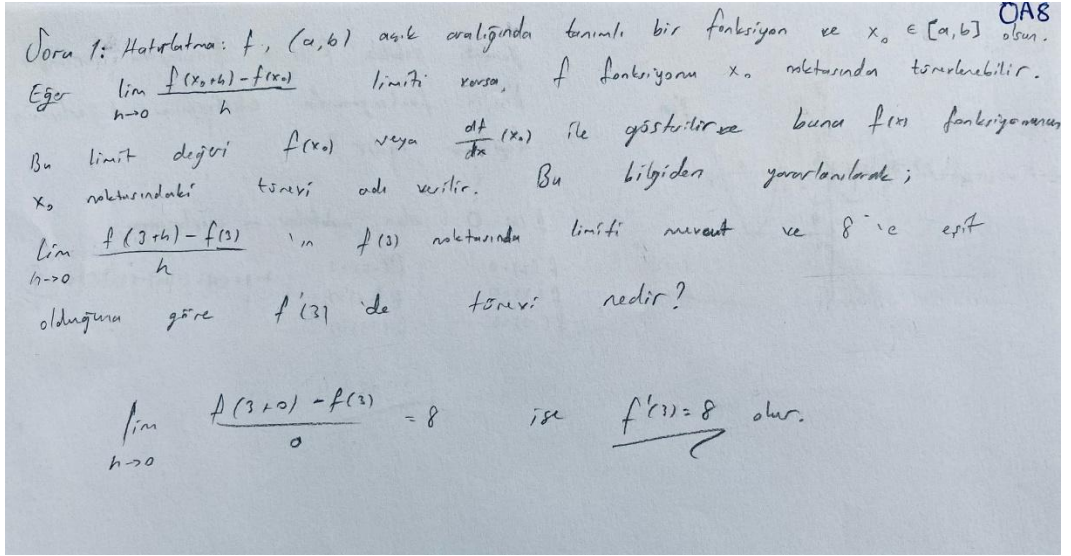 ÖA8
Soru 1: Hatırlatma: f, (a,b) açık aralığında tanımlı bir fonksiyon ve x₀ ∈ [a,b] olsun.
Eğer lim h->0 f(x₀+h) - f(x₀) / h limiti varsa, f fonksiyonu x₀ noktasında türevlenebilir.
Bu limit değeri f(x₀) veya df/dx (x₀) ile gösterilir ve buna f(x) fonksiyonunun
x₀ noktasındaki türevi adı verilir. Bu bilgiden yararlanılarak;
lim h->0 f(3+h) - f(3) / h 'ın f(3) noktasında limiti mevcut ve 8'e eşit
olduğuna göre f'(3) 'de türevi nedir?
lim h->0 f(3+0) - f(3) / 0 = 8 ise f'(3) = 8 olur.